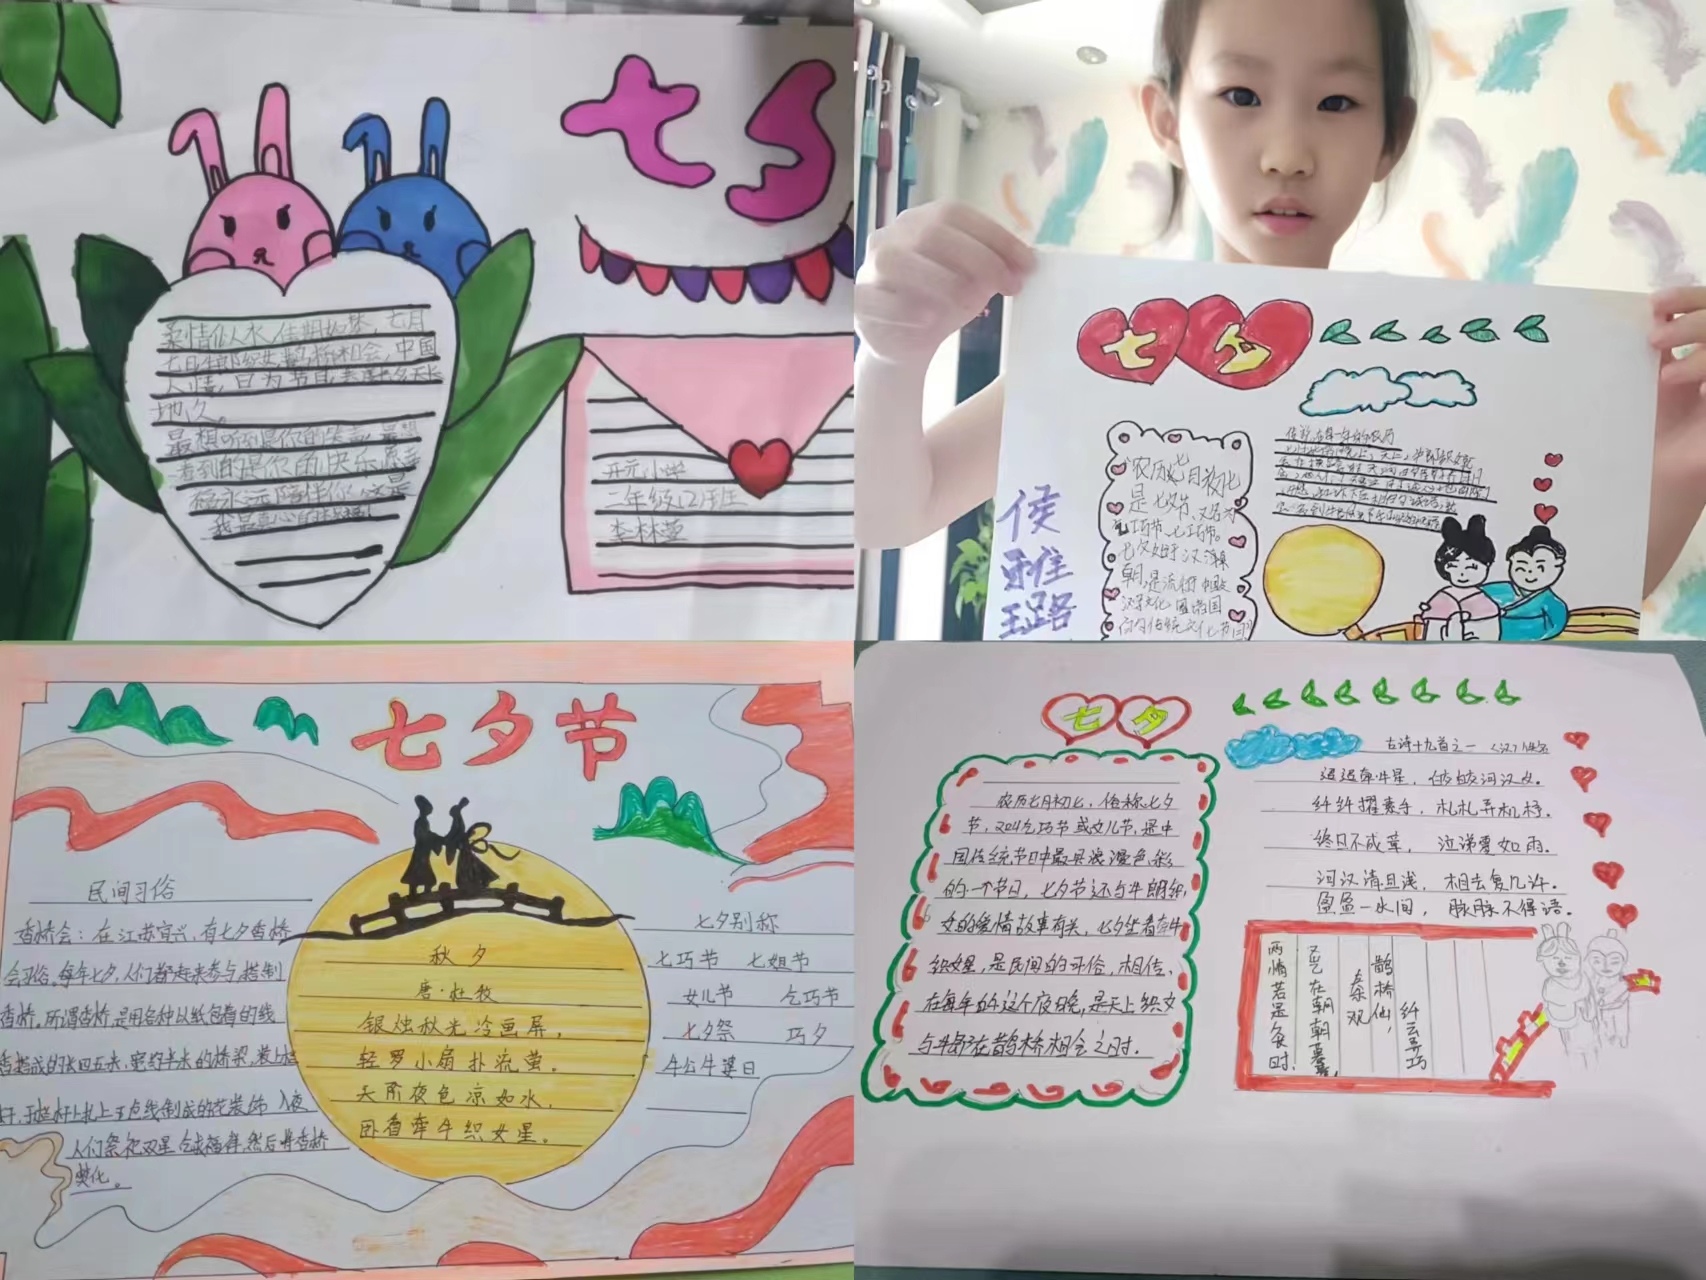 七夕
柔情似水,佳期如梦,七月
七日牛郎织女鹊桥相会,中国
人情,
地久。
最想听到是你的笑声,最想
看到的是你的快乐,愿幸
福永远陪伴你,这是
我最真心的
开元小学
二年级(2)班
李林蓥
七夕
农历七月初七
是七夕节,又名为
乞巧节、七巧节。
七夕始于汉
朝,是流行
汉字文化
的传统文化节日
侯
雅
璐
七夕节
民间习俗
香桥会:在江苏宜兴,有七夕香桥
会习俗。每年七夕,人们都赶来参与,搭制
香桥。所谓香桥,是用各种以纸包着的线
香搭成的张四五米,宽约半米的桥梁,装上栏
杆,于栏杆上扎上五色线制成的花装饰 入夜
人们祭祀双星 乞求福祥,然后将香桥
焚化。
秋夕
唐·杜牧
银烛秋光冷画屏,
轻罗小扇扑流萤。
天阶夜色凉如水,
卧看牵牛织女星。
七夕别称
七巧节 七姐节
女儿节 乞巧节
七夕祭 巧夕
牛公牛婆日
七夕
农历七月初七,俗称七夕
节,又叫乞巧节或女儿节,是中
国传统节日中最具浪漫色彩
的一个节日,七夕节还与牛朗织
女的爱情故事有关,七夕坐看牵牛
织女星,是民间的习俗,相传,
在每年的这个夜晚,是天上织女
与牛郎在鹊桥相会之时。
古诗十九首之一 (汉)
迢迢牵牛星,皎皎河汉女。
纤纤擢素手,札札弄机杼。
终日不成章,泣涕零如雨。
河汉清且浅,相去复几许。
盈盈一水间,脉脉不得语。
鹊桥仙,
秦观
纤云弄巧
两情若是久时,
又岂在朝朝暮暮,